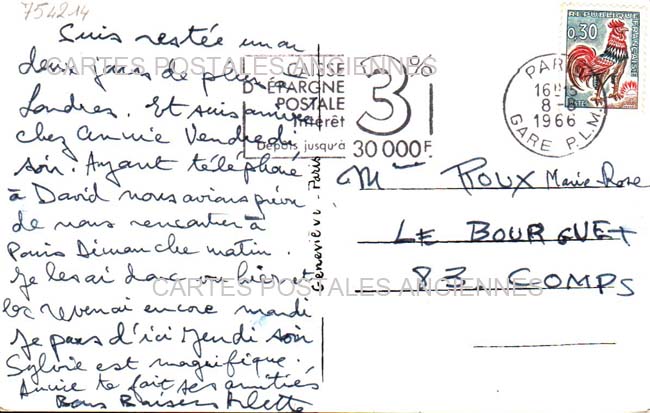 754214
Suis restée un ou
deux jours de plus à
Londres. Et suis arrivée
chez Annie Vendredi
soir. Ayant téléphoné
à David nous avions prévu
de nous rencontrer à
Paris Dimanche matin.
Je les ai donc vu hier et
les reverrai encore mardi
Je pars d'ici Jeudi soir
Sylvie est magnifique.
Annie te fait ses amitiés
Bons Baisers Arlette
CARTES POSTALES ANCIENNES
CAISSE
D'ÉPARGNE
POSTALE
Intérêt
3%
Depuis jusqu'à
30 000 F
PARIS
16H15
8-8
1966
GARE P.L.M.
0,30
REPUBLIQUE FRANÇAISE
POSTES
Geneviève - Paris
Mme ROUX Marie-Rose
LE BOURGUET
83 COMPS
CARTES POSTALES ANCIENNES